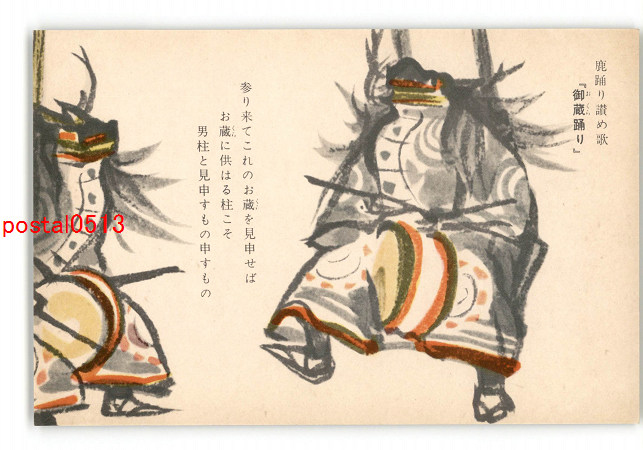 鹿踊り讃め歌
『御蔵踊り』
参り来てこれのお蔵を見申せば
お蔵に供はる柱こそ
男柱と見申すもの申すもの
postal0513